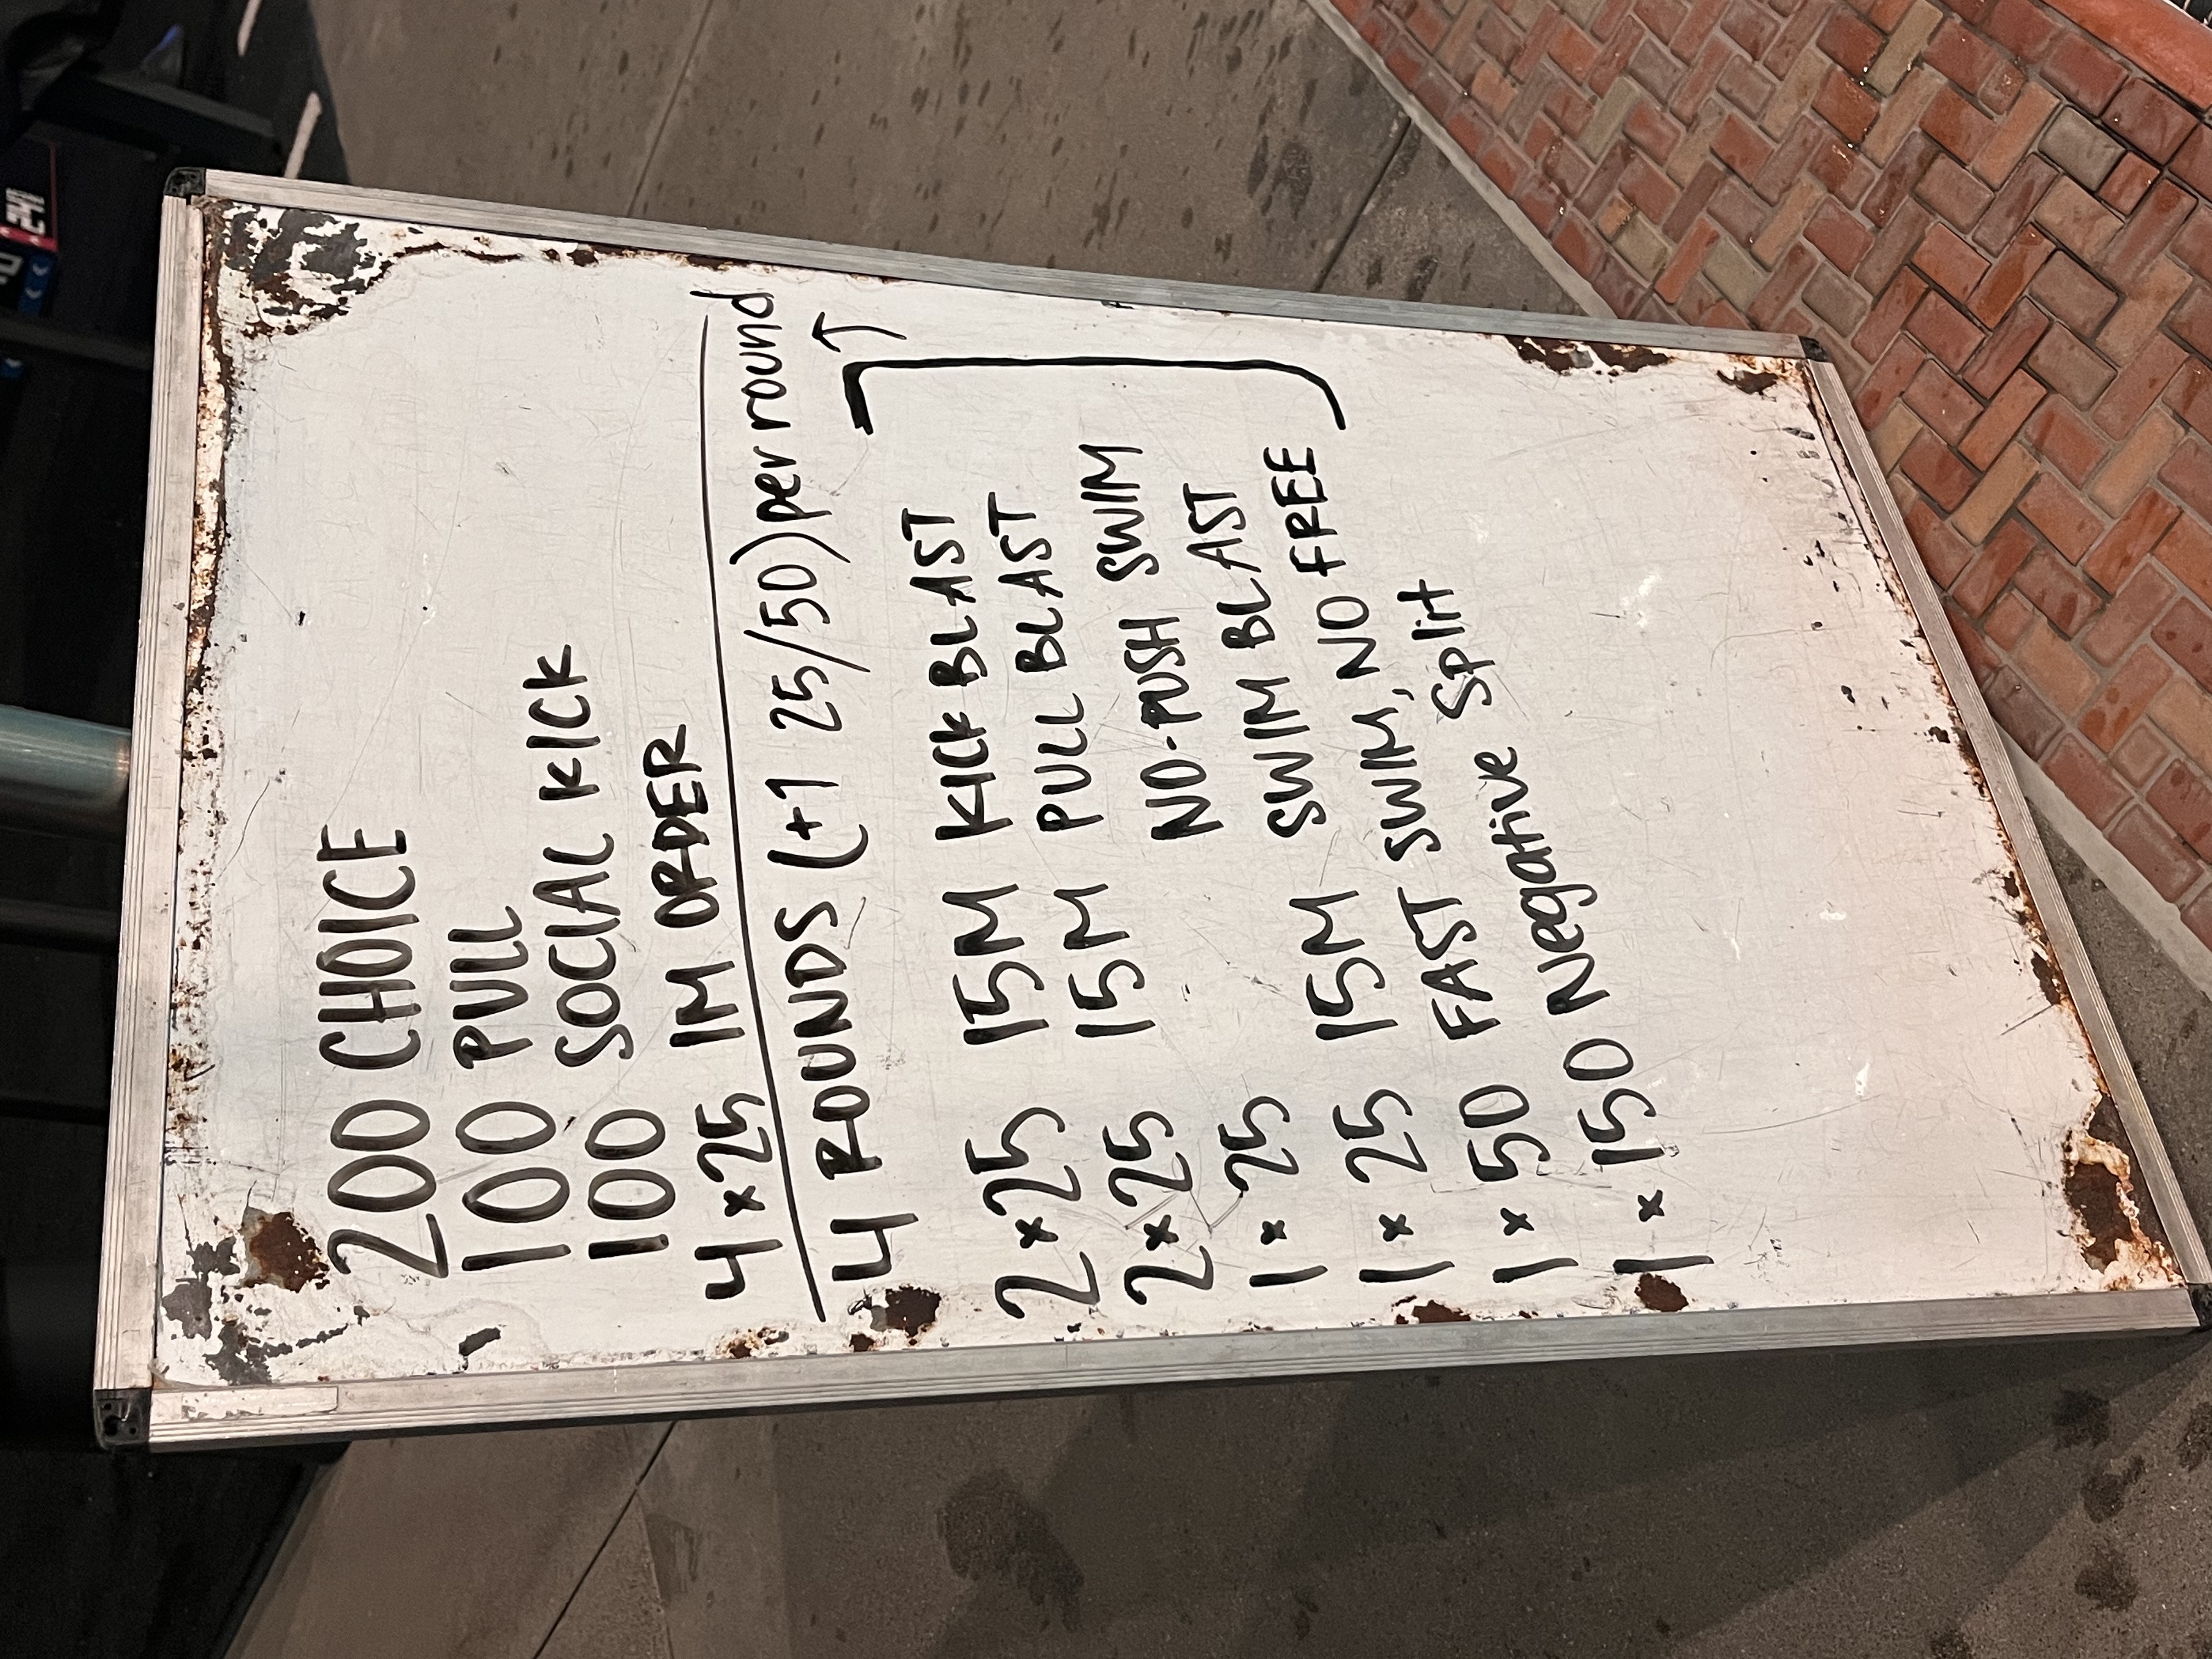 200 CHOICE
100 PULL
100 SOCIAL KICK
4 x 25 IM ORDER
4 ROUNDS (+1 25/50) per round
2 x 25 15M KICK BLAST
2 x 25 15M PULL BLAST
1 x 25 NO-PUSH SWIM
NO BLAST
1 x 25 15M SWIM BLAST
1 x 50 FAST SWIM, NO FREE
1 x 150 Negative Split